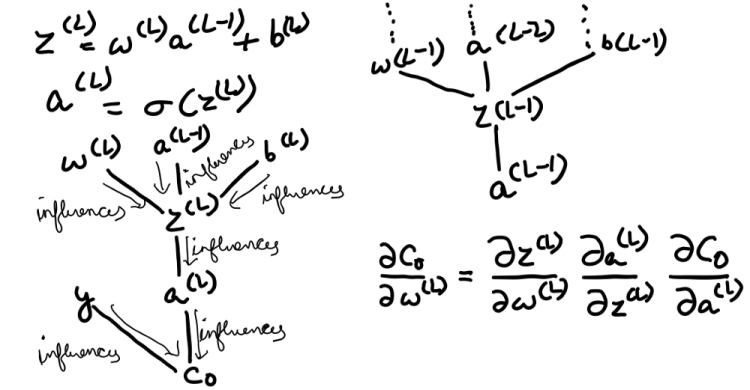 z^(L) = w^(L) a^(L-1) + b^(L)
a^(L) = σ(z^(L))
w^(L) a^(L-1) b^(L)
influences
influences
influences
z^(L)
influences
a^(L)
y
influences
influences
C₀
w^(L-1) a^(L-2) b^(L-1)
z^(L-1)
a^(L-1)
∂C₀/∂w^(L) = ∂z^(L)/∂w^(L) ∂a^(L)/∂z^(L) ∂C₀/∂a^(L)